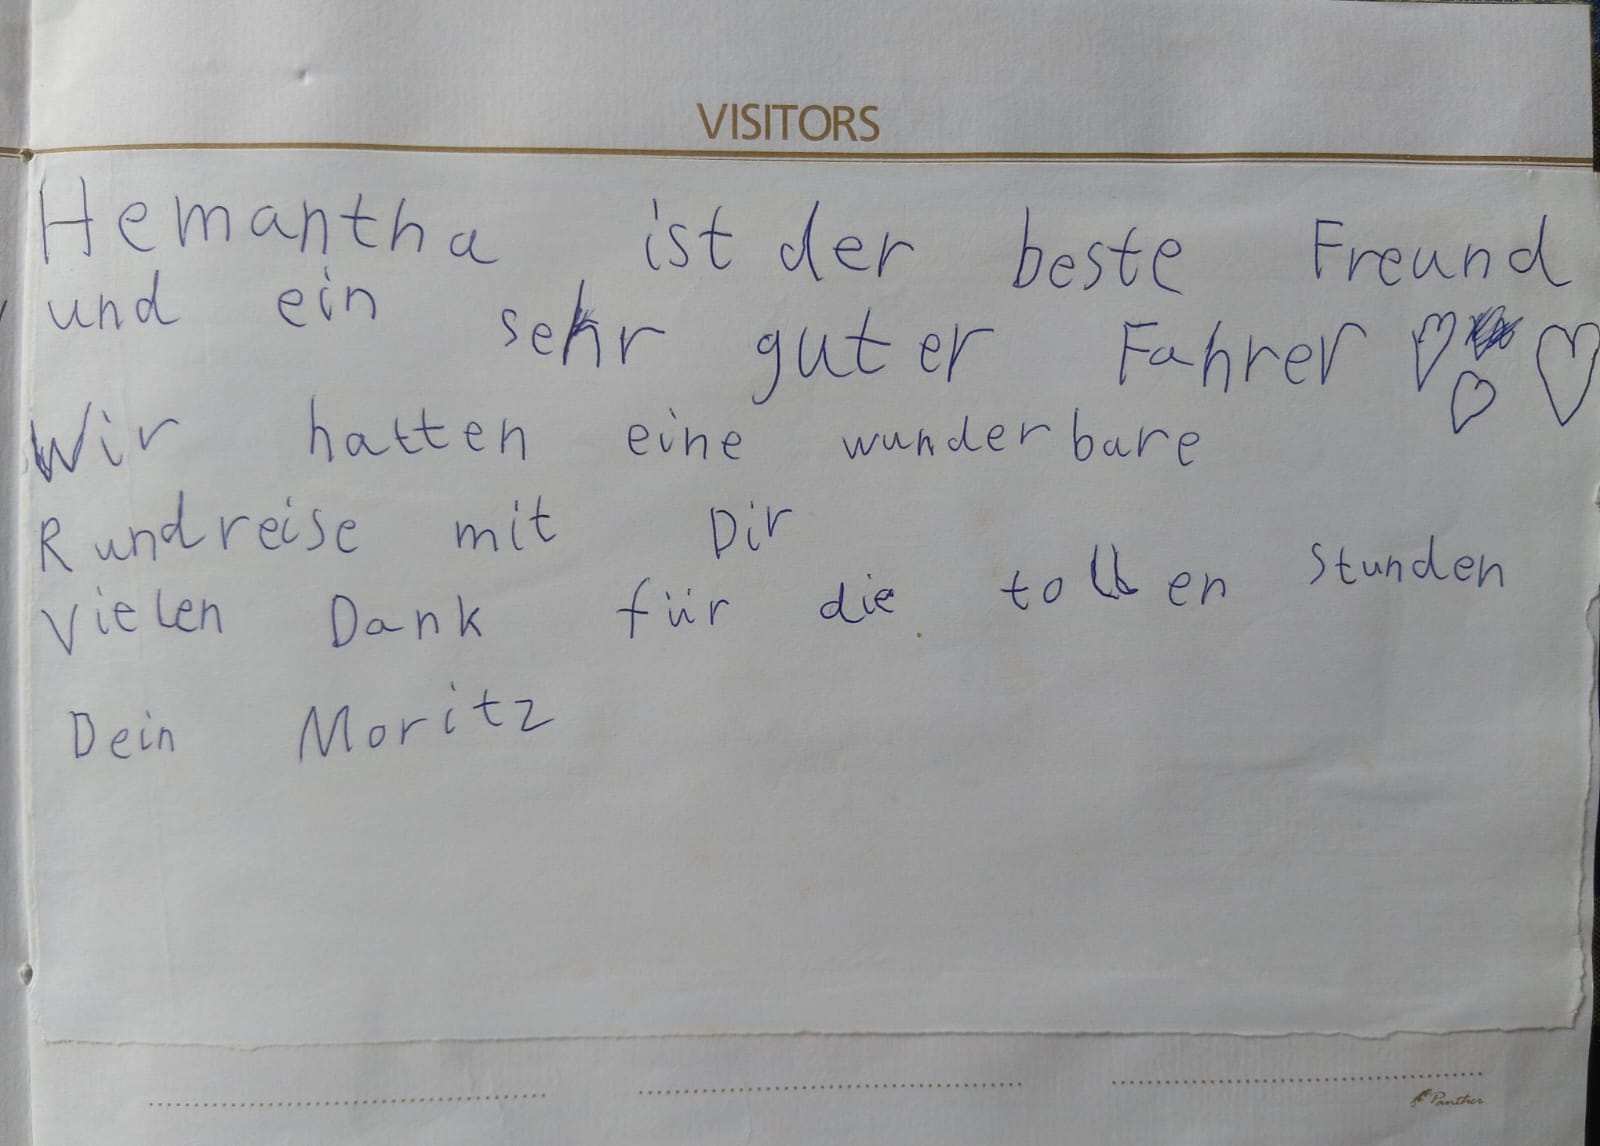 VISITORS
Hemantha ist der beste Freund
und ein sehr guter Fahrer
Wir hatten eine wunderbare
Rundreise mit Dir
Vielen Dank für die tollen Stunden
Dein Moritz
Panther